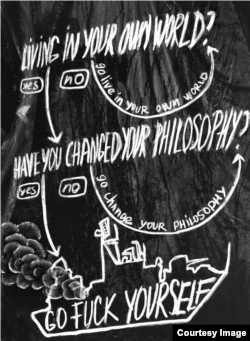 LIVING IN YOUR OWN WORLD?
yes
no
go live in your own world
HAVE YOU CHANGED YOUR PHILOSOPHY?
yes
no
go change your PHILOSOPHY
GO FUCK YOURSELF
Courtesy Image